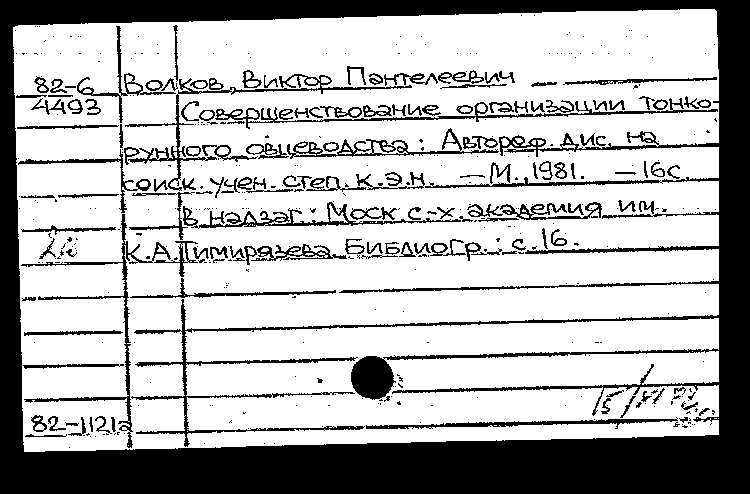 82-6 Волков, Виктор Пантелеевич
4493 Совершенствование организации тонко-
рунного овцеводства: Автореф. дис. на
соиск. учен. степ. к. э. н. — М., 1981. — 16с.
В надзаг.: Моск. с.-х. академия им.
К. А. Тимирязева. Библиогр.: с. 16.
82-1121а
15/